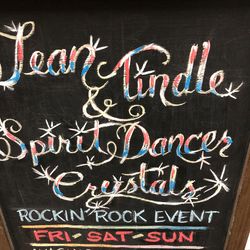 Jean Tindle
&
Spirit Dancer
Crystals
ROCKIN' ROCK EVENT
FRI - SAT - SUN